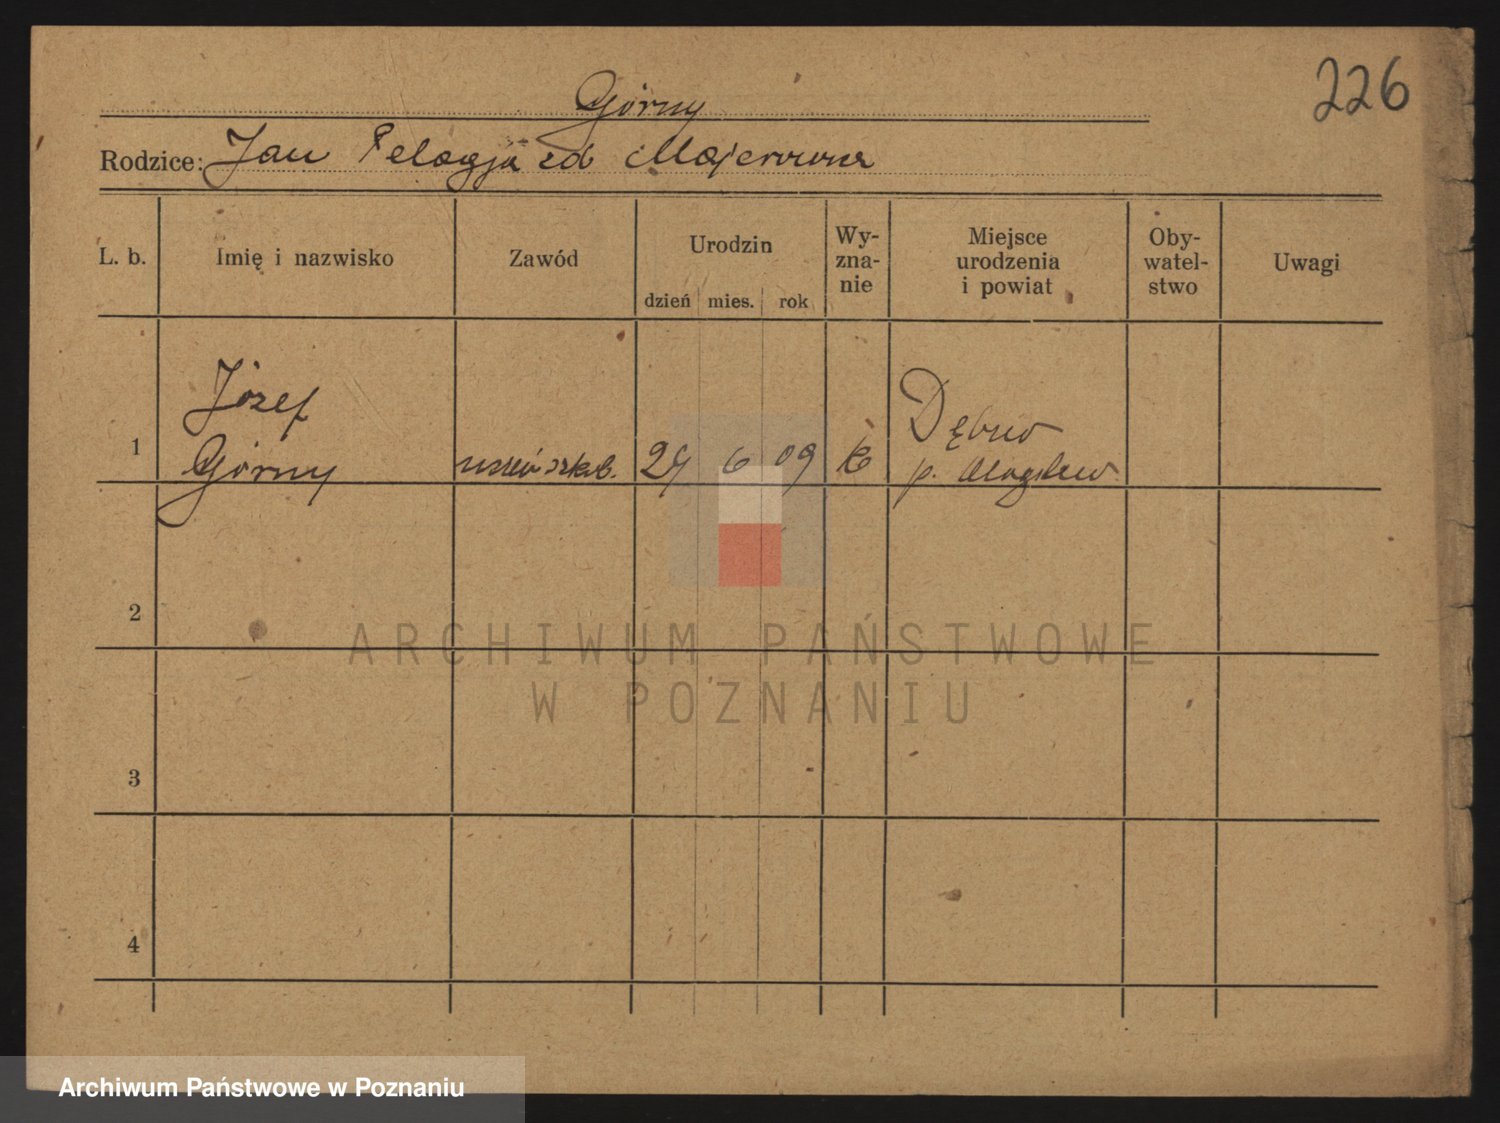 226
Górny
Rodzice: Jan Pelagja zd Majerowna
L. b. Imię i nazwisko Zawód Urodzin dzień mies. rok Wy-zna-nie Miejsce urodzenia i powiat Oby-watel-stwo Uwagi
Józef
1 Górny uczeń szk. 29 6 09 k Dębno
p. Mogilno
2
3
4
ARCHIWUM PAŃSTWOWE
W POZNANIU
Archiwum Państwowe w Poznaniu